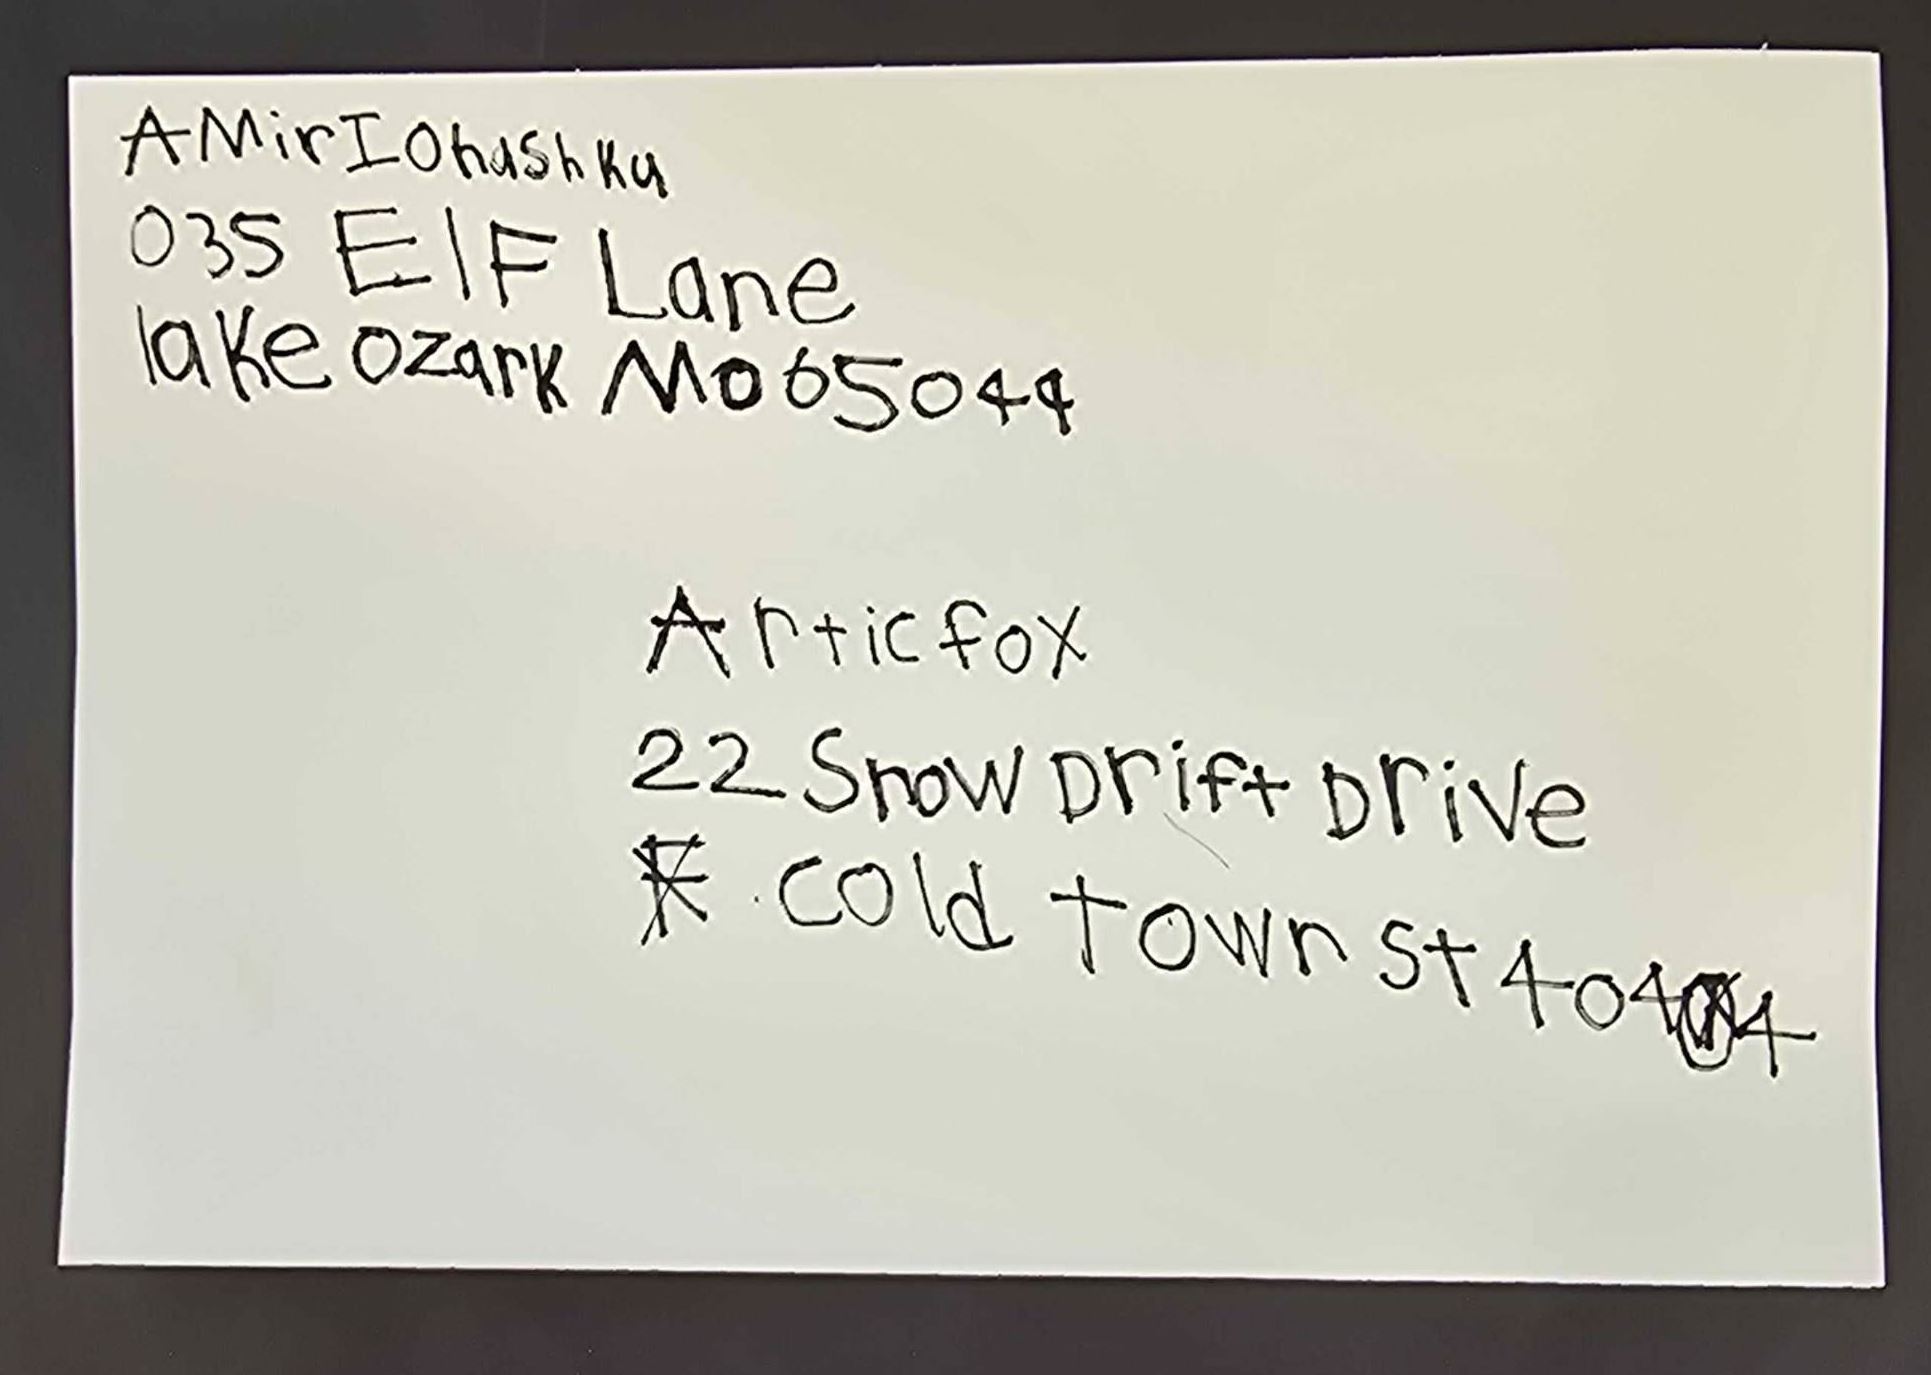 AMir IOhashka
035 ElF Lane
lake ozark Mo 65044
Artic fox
22 Snow Drift Drive
cold town St 40404